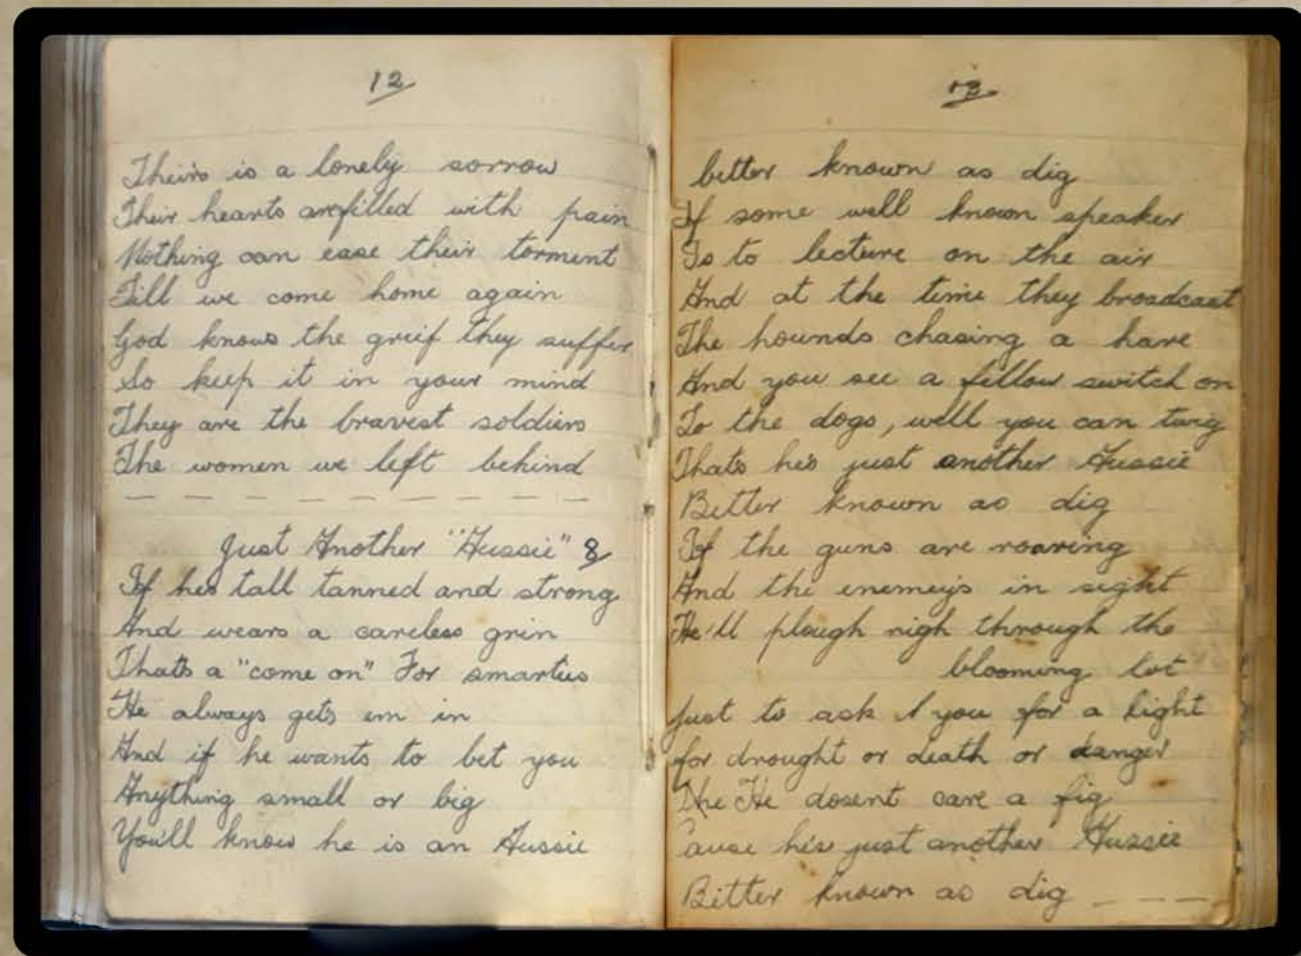 12
Theirs is a lonely sorrow
Their hearts are filled with pain
Nothing can ease their torment
Till we come home again
God knows the grief they suffer
So keep it in your mind
They are the bravest soldiers
The women we left behind
Just Another "Aussie" 8
If hes tall tanned and strong
And wears a careless grin
Thats a "come on" For smarties
He always gets em in
And if he wants to bet you
Anything small or big
You'll know he is an Aussie
13
better known as dig
If some well known speaker
Is to lecture on the air
And at the time they broadcast
The hounds chasing a hare
And you see a fellow switch on
To the dogs, well you can twig
Thats he's just another Aussie
Better known as dig
If the guns are roaring
And the enemey's in sight
He'll plough nigh through the
blooming lot
Just to ask you for a light
for drought or death or danger
He dosent care a fig
'ause he's just another Aussie
Better known as dig